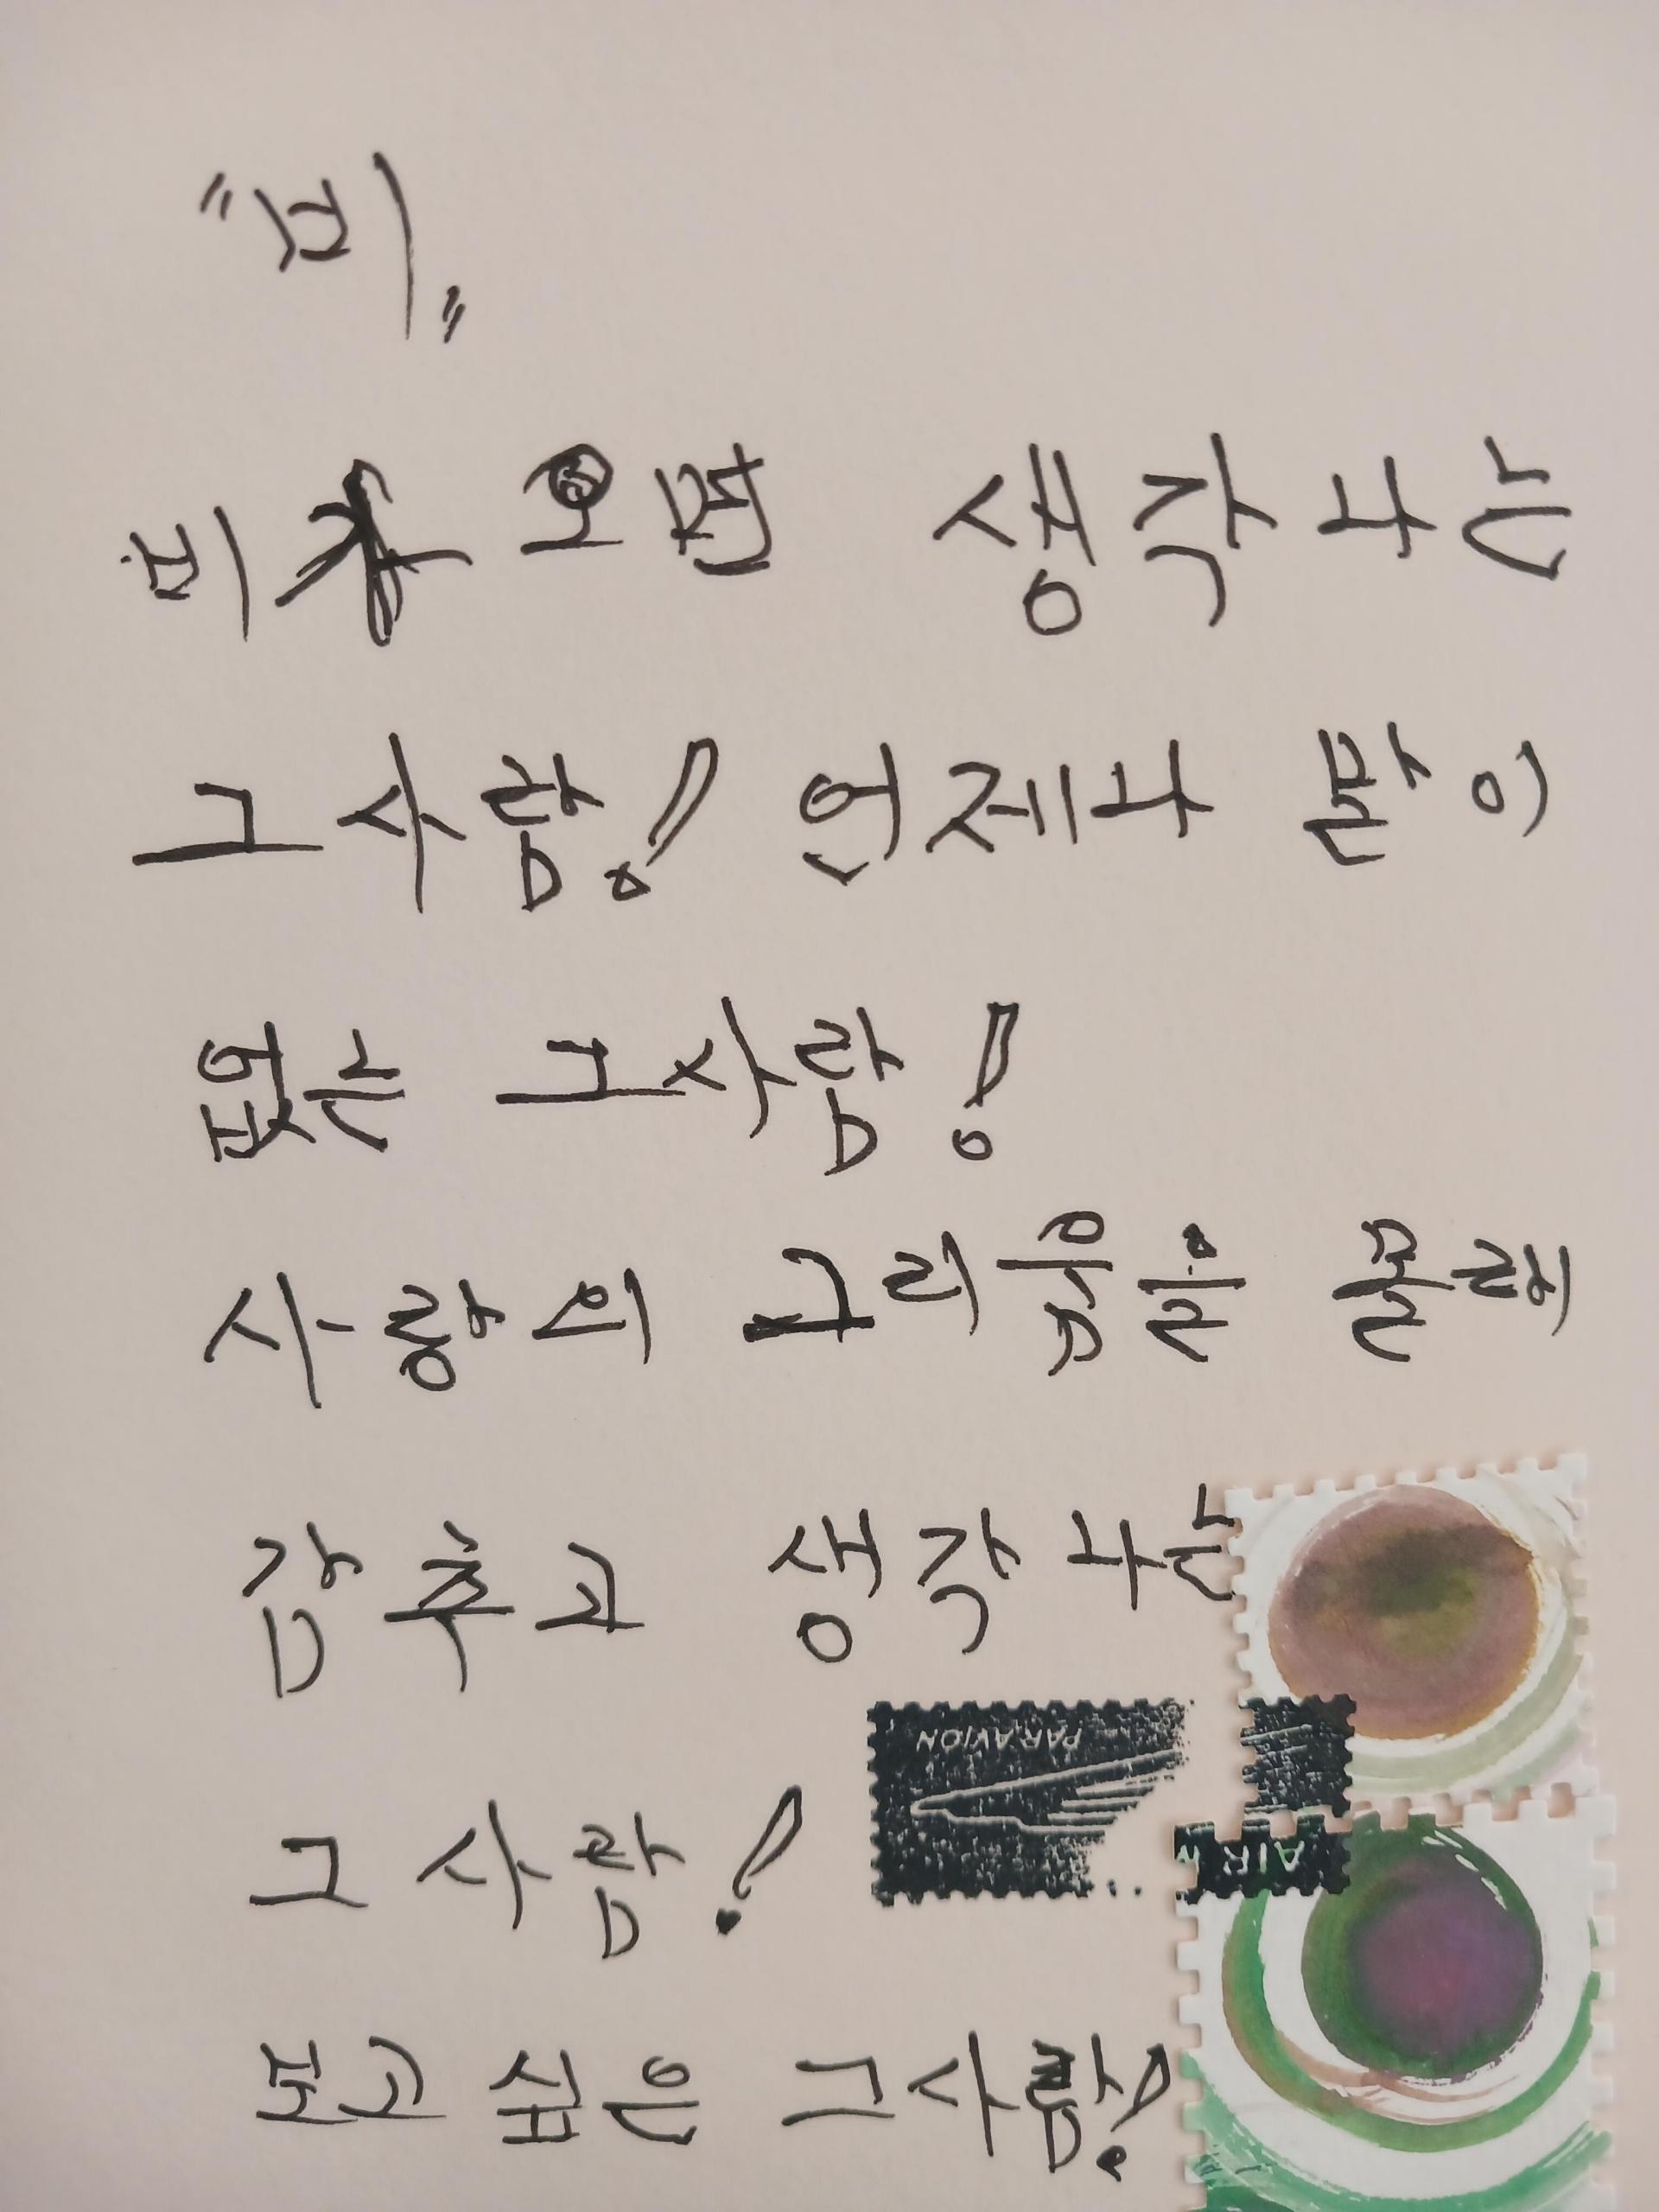 "비"
비가 오면 생각나는
그 사람! 언제나 말이
없는 그 사람!
사랑의 그리움을 몰래
감추고 생각나는
그 사람!
보고 싶은 그 사람!
PAR AVION
AIR